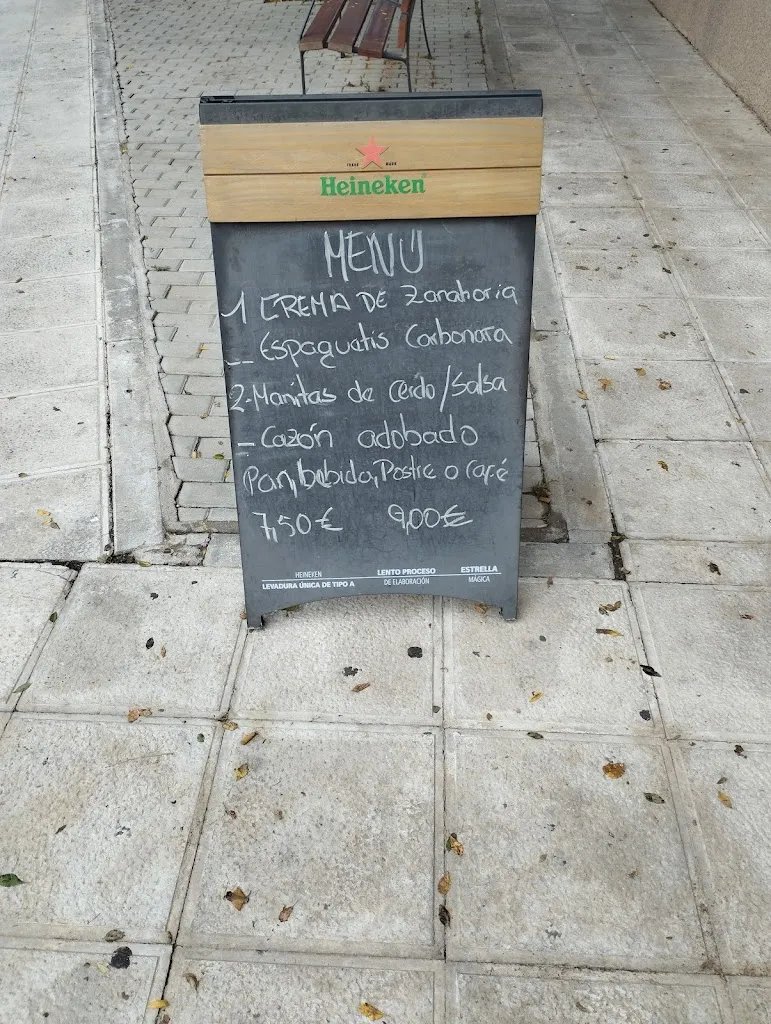 TRADE MARK
Heineken
MENÚ
1 CREMA DE Zanahoria
-- Espaguetis Carbonara
2-Manitas de Cerdo/Salsa
- Cazón adobado
Pan, bebida, Postre o Café
7,50€ 9,00€
HEINEKEN LENTO PROCESO ESTRELLA
LEVADURA ÚNICA DE TIPO A DE ELABORACIÓN MÁGICA